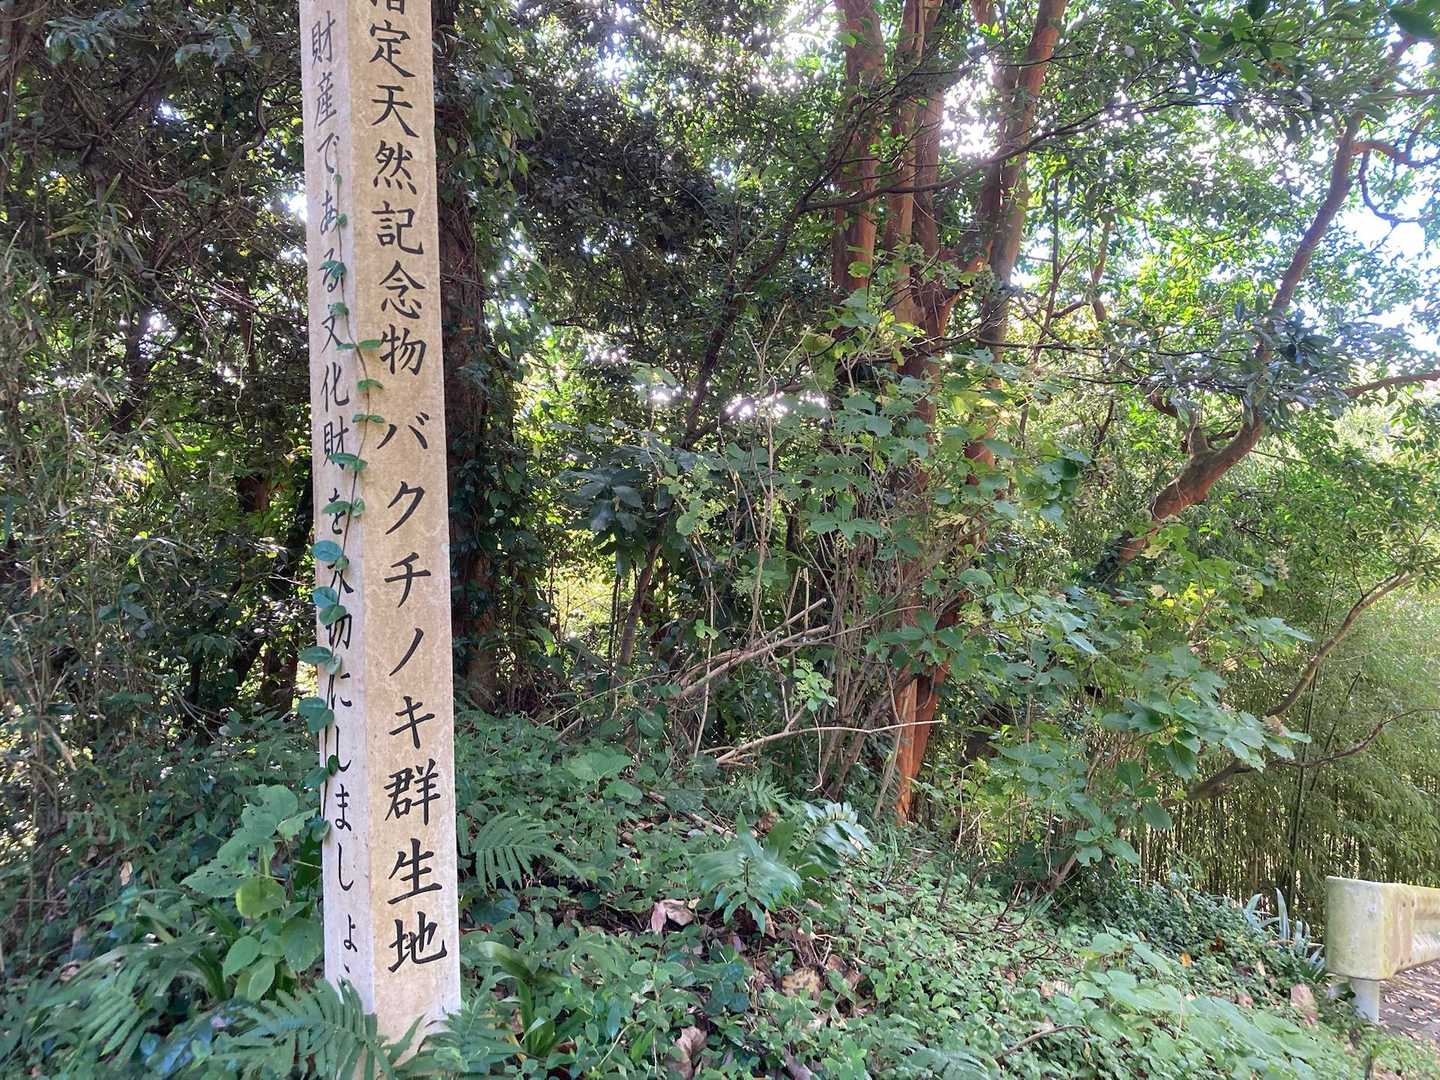 指定天然記念物 バクチノキ群生地
財産である文化財を大切にしましょう